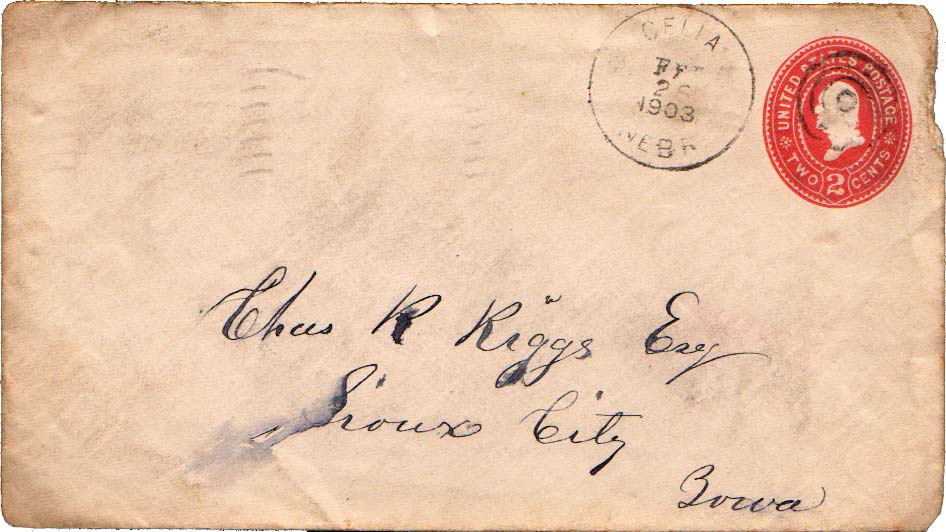 CELIA
FE
26
1903
NEBR
UNITED STATES POSTAGE
TWO 2 CENTS
Chas R Riggs Esq
Sioux City
Iowa